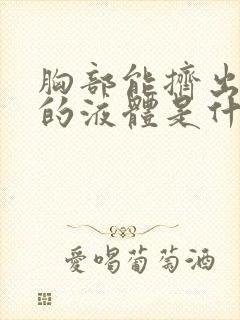 胸部能擠出
的液體是什
愛喝葡萄酒